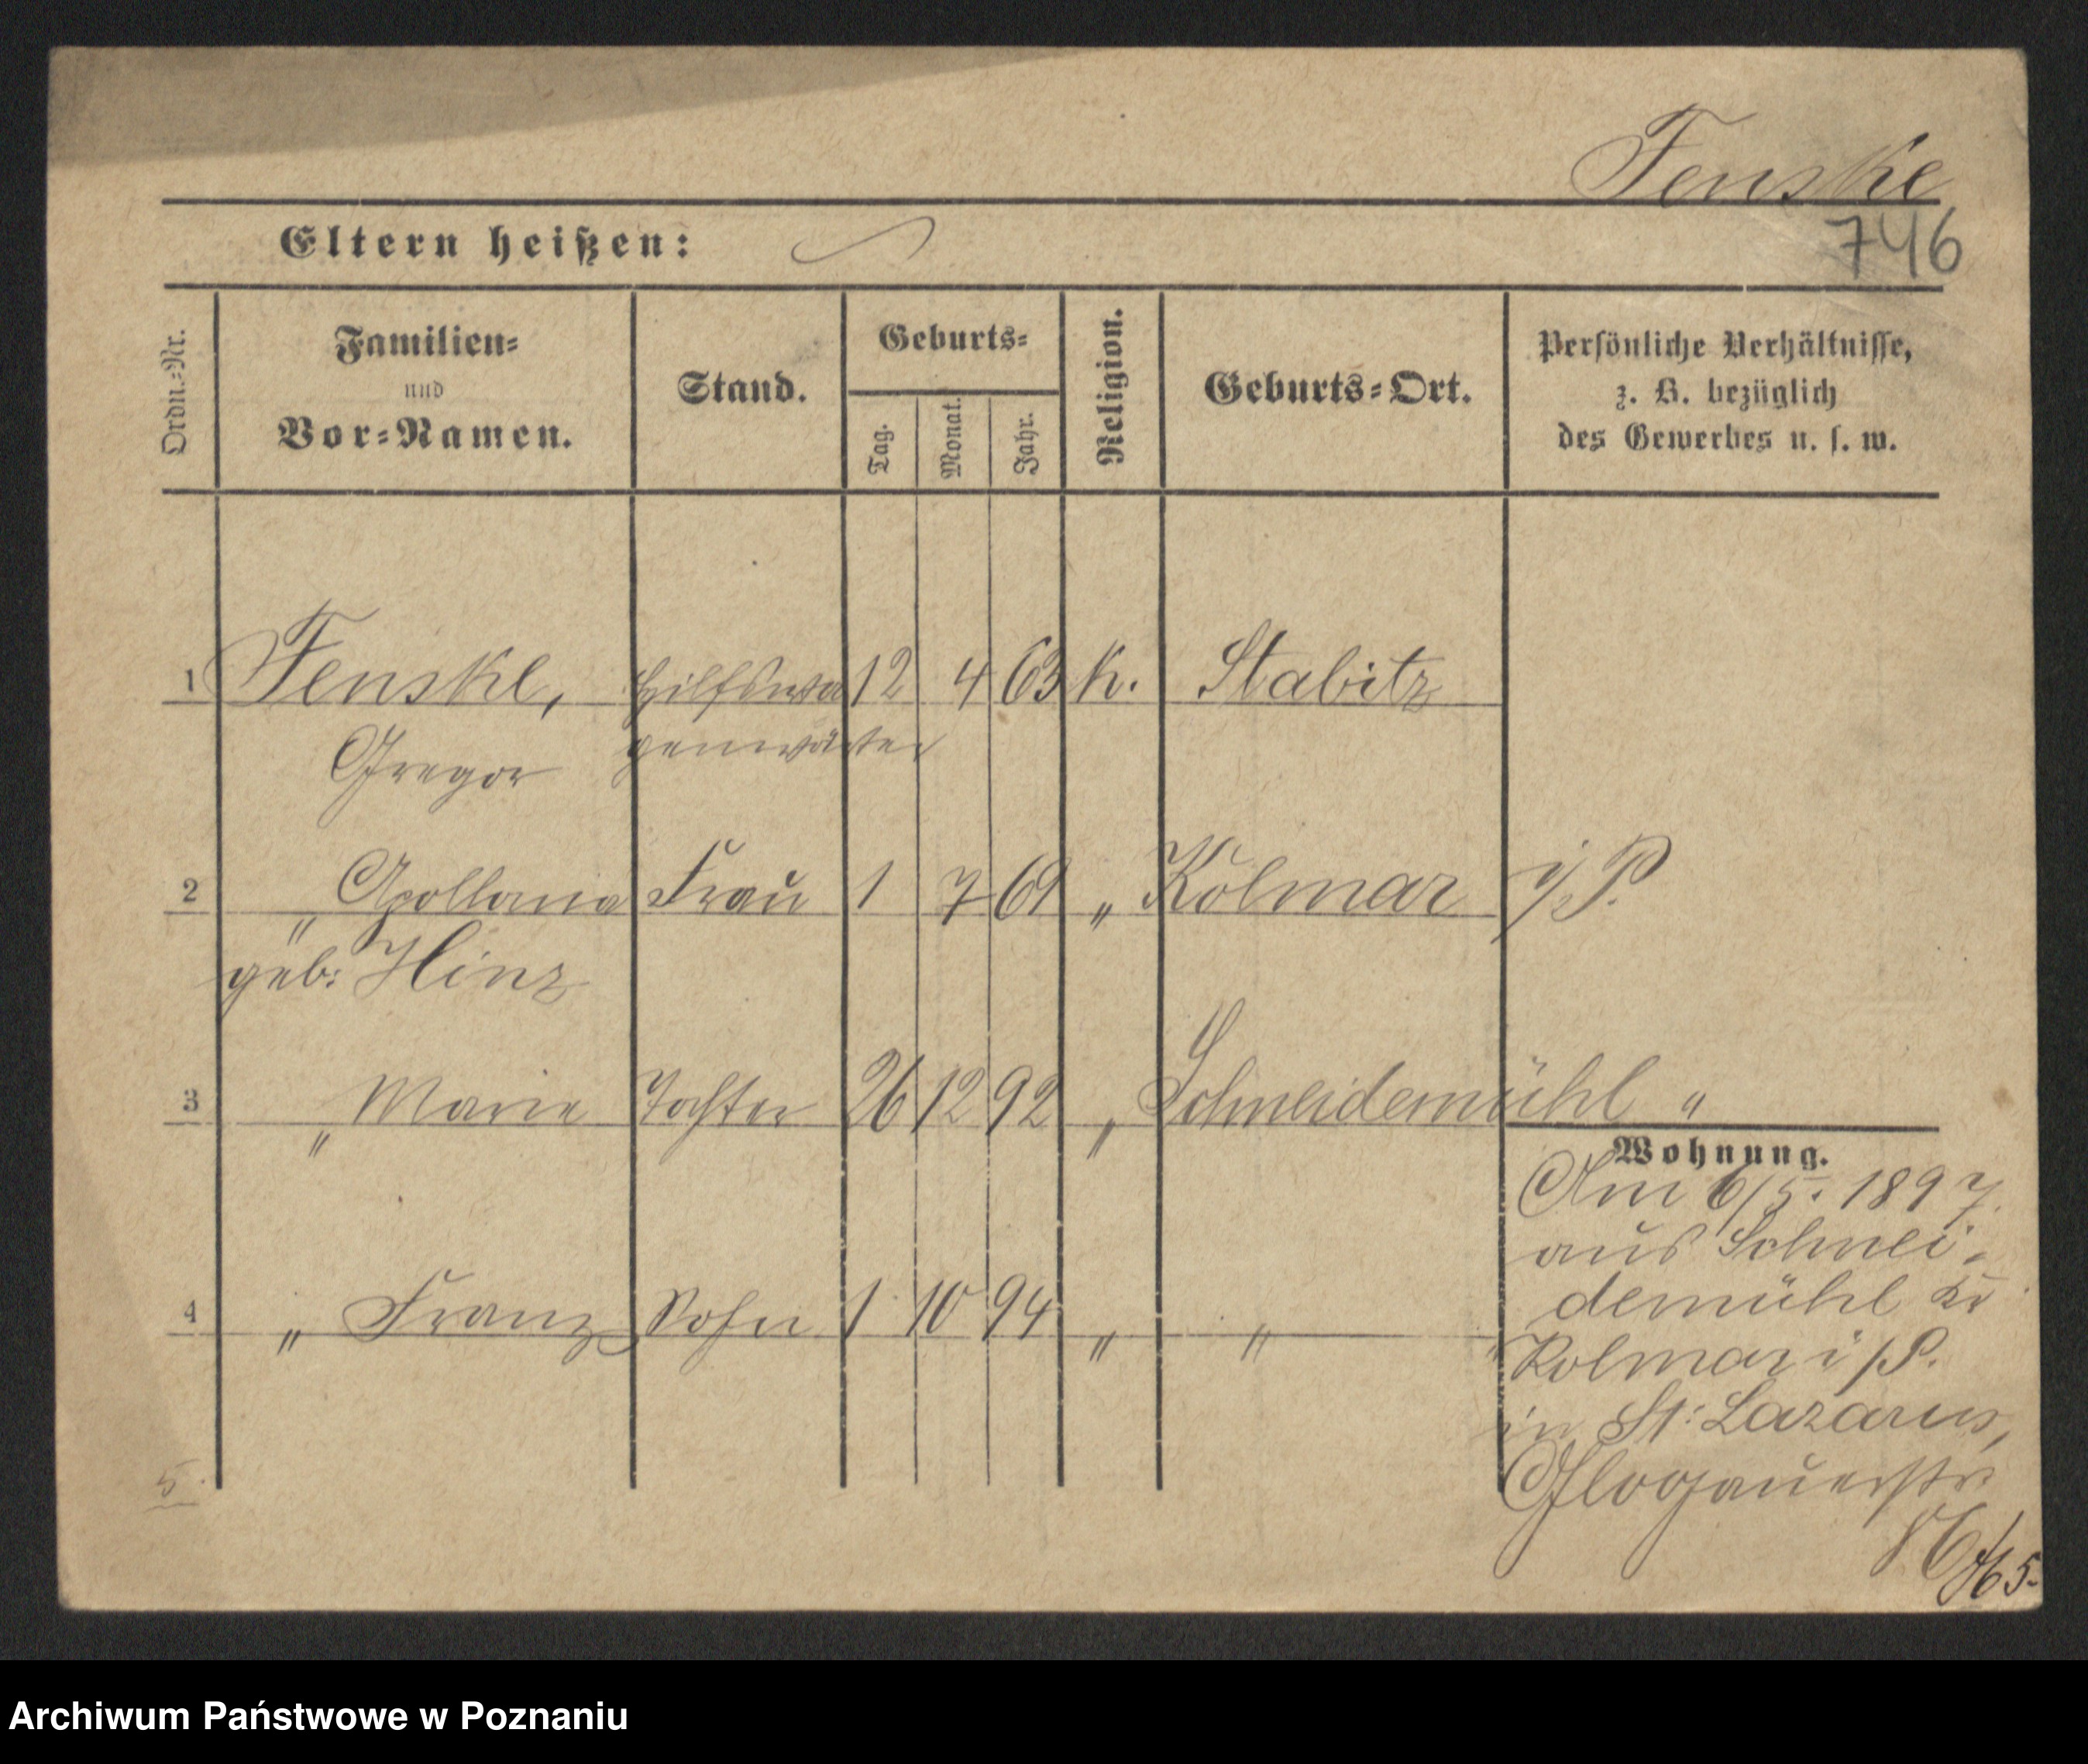 Fenske
746
Eltern heißen:
Ordn.-Nr.
Familien-
und
Vor-Namen.
Stand.
Geburts-
Tag.
Monat.
Jahr.
Religion.
Geburts-Ort.
Persönliche Verhältnisse,
z. B. bezüglich
des Gewerbes u. s. w.
1 Fenske, Hilfswa 12 4 63 k. Stabitz
Gregor genwärter
2 " Apollonia Frau 1 7 69 " Kolmar i/P.
geb: Hinz
3 " Marie Tochter 26 12 92 " Schneidemühl "
4 " Franz Sohn 1 10 94 " " "
5
Wohnung.
Am 6/5. 1897.
aus Schnei-
demühl Kr
Kolmar i/P.
in St: Lazarus,
Glogauerstr